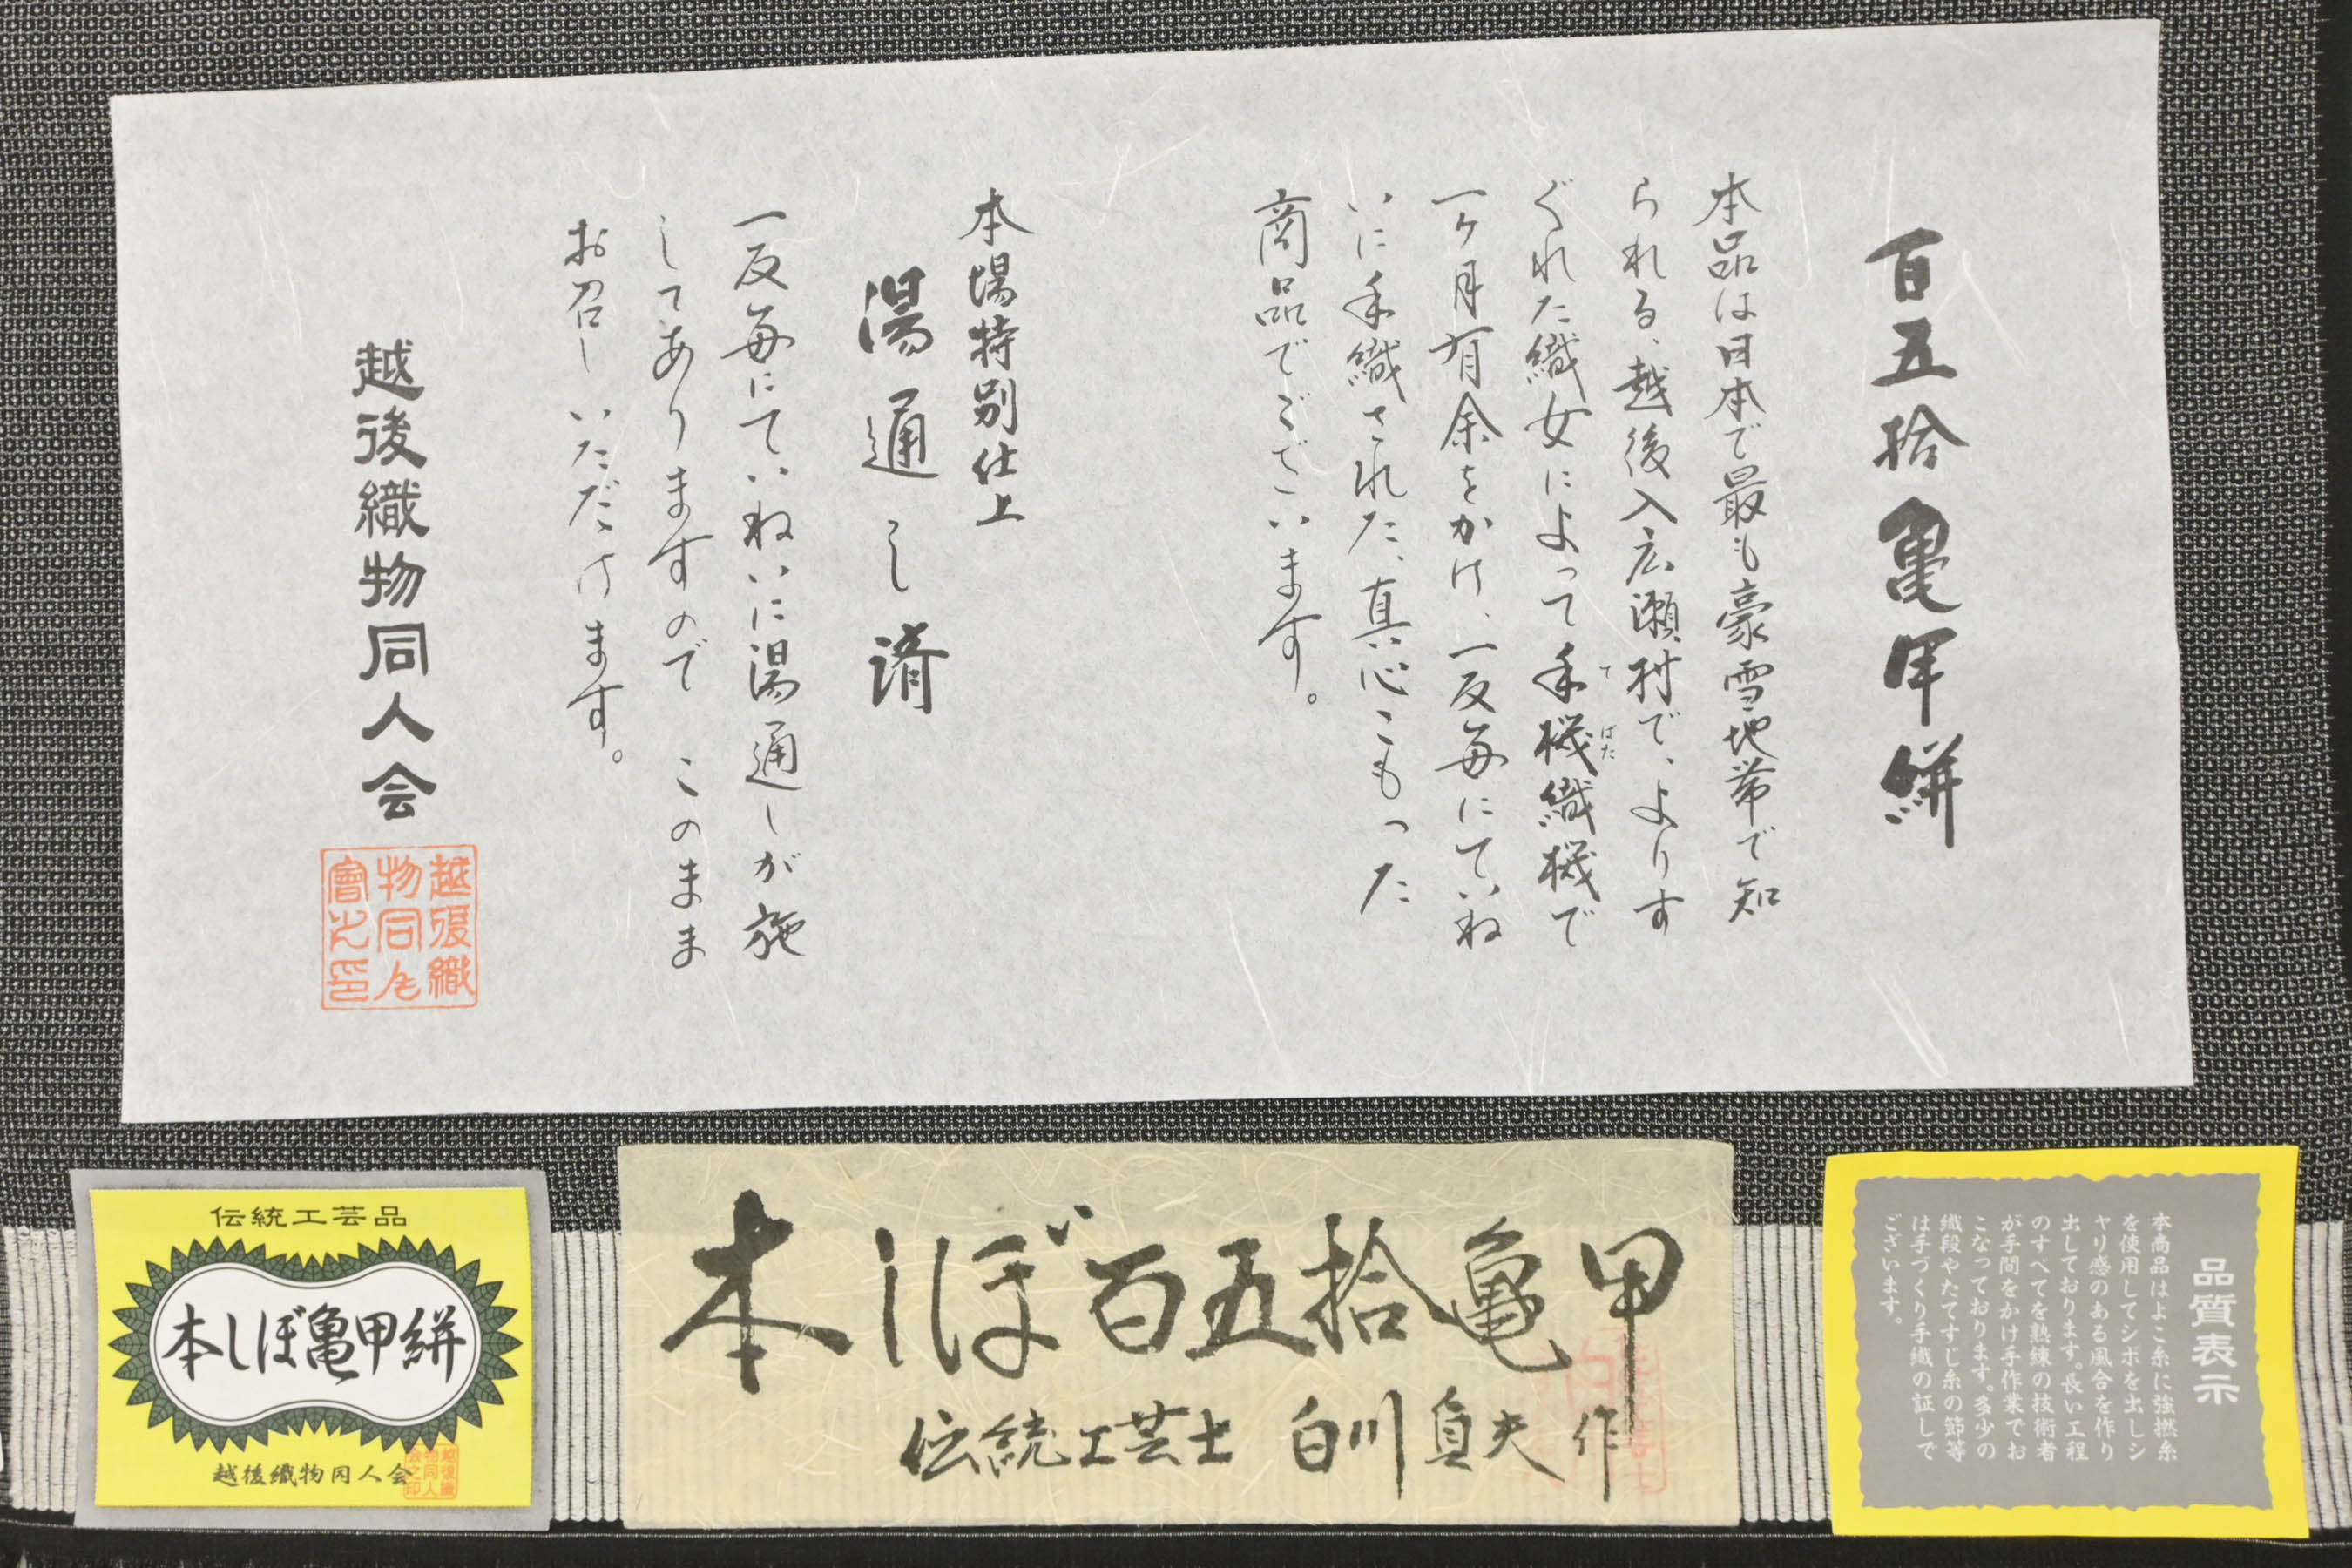 百五拾亀甲絣
本品は日本で最も豪雪地帯で知
られる、越後入広瀬村で、よりす
ぐれた織女によって手機織機で
てばた
一ヶ月有余をかけ、一反毎にていね
いに手織された、真心こもった
商品でございます。
本場特別仕上
湯通し済
一反毎にていねいに湯通しが施
してありますので このまま
お召しいただけます。
越後織物同人会
越後織
物同人
會之印
伝統工芸品
本しぼ亀甲絣
越後織物同人会
本しぼ百五拾亀甲
伝統工芸士 白川貞夫作
品質表示
本商品はよこ糸に強撚糸
を使用してシボを出しシ
ャリ感のある風合を作り
出しております。長い工程
のすべてを熟練の技術者
が手間をかけ手作業でお
こなっております。多少の
織段やたてすじ糸の節等
は手づくり手織の証しで
ございます。